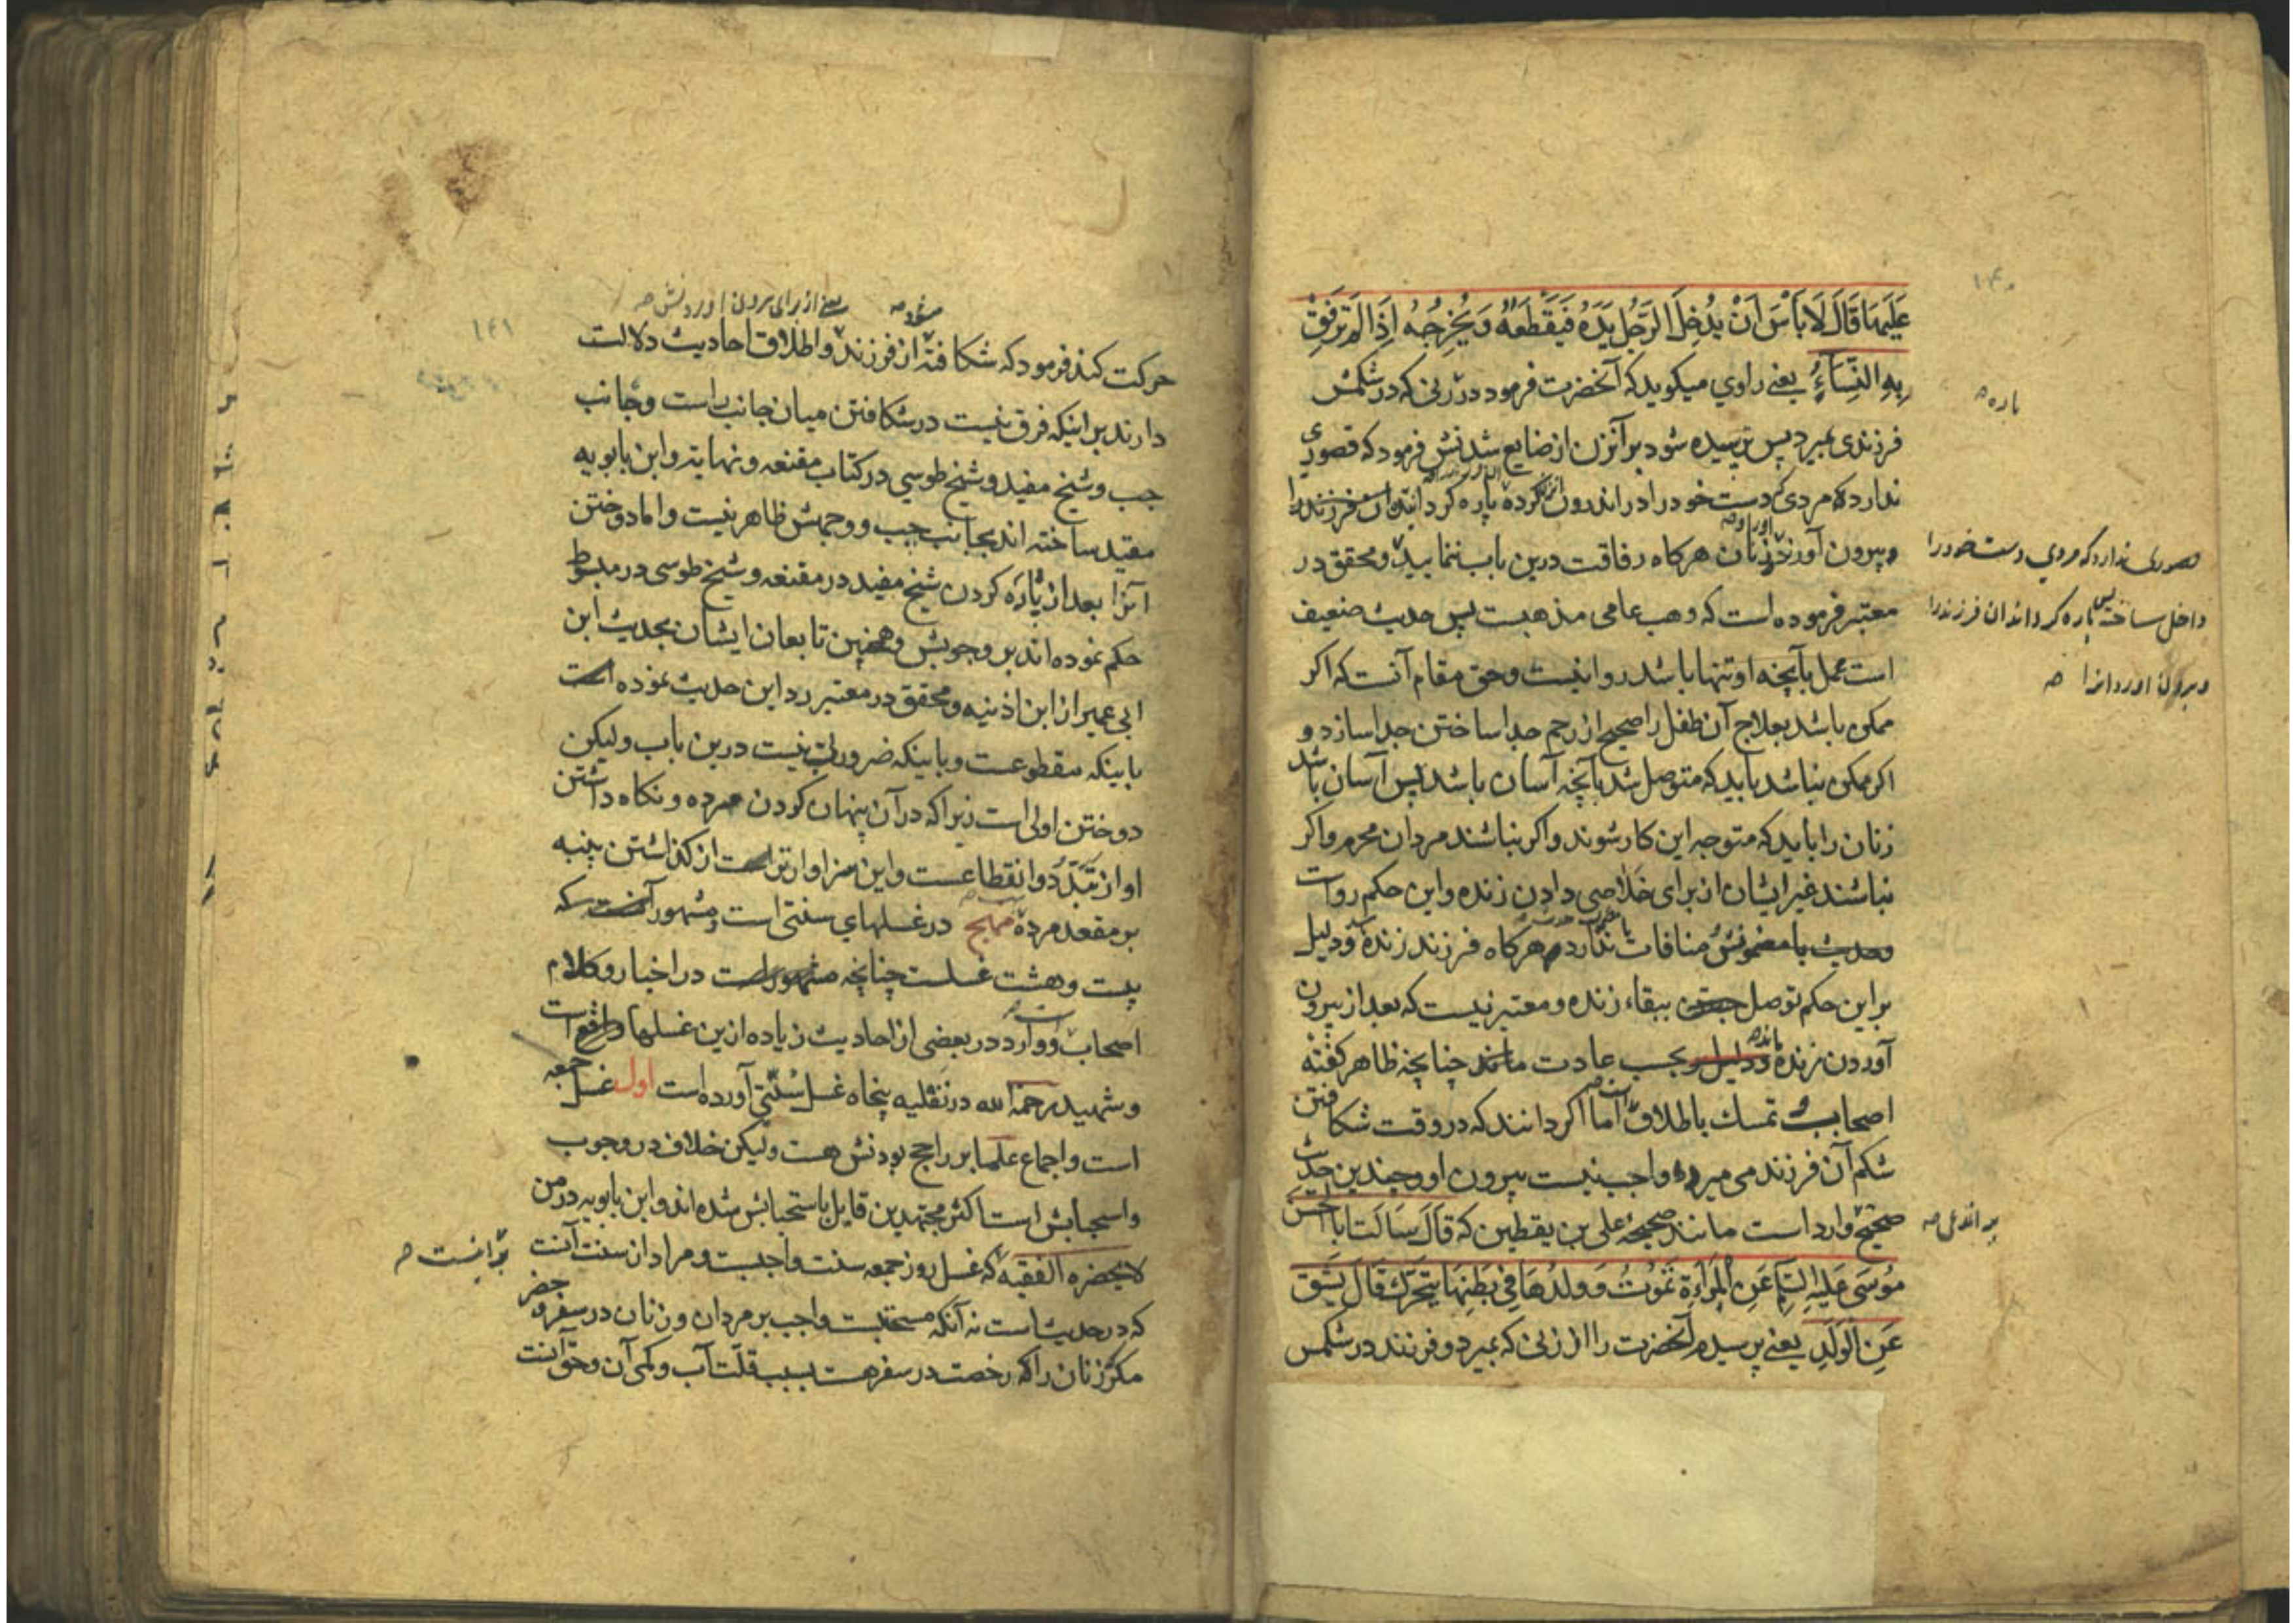 ۱۴۰
عَلَيهَا قَالَ لَا بَأسَ اَنْ يُدْخِلَ الرَّجُلُ يَدَهُ فَيَقْطَعَهُ وَيُخْرِجَهُ اِذَا لَمْ تَرفَقْ
بِهِ النِّسَاءُ يعنى راوي ميكويد كه آنحضرت فرمود در زنى كه در شكمش
فرزندى بميرد پس ترسيده شود بر آنزن از ضايع شدنش فرمود كه قصورى
ندارد كه مردى دست خود را در اندرون كرده پاره كرداند آن فرزند را
وبيرون آورد زنان هركاه رفاقت درين باب ننمايند ومحقق در
معتبر فرموده است كه وهب عامى مذهبست پس حديث ضعيف
است عمل بآنچه او تنها باشد روا نيست وحق مقام آنست كه اكر
ممكن باشد بعلاج آن طفل را صحيح از رحم جدا ساختن جدا سازد و
اكر ممكن نباشد بايد كه متوصل شد بآنچه آسان باشد پس آسان باشد
زنان را بايد كه متوجه اين كار شوند واكر نباشند مردان محرم واكر
نباشند غير ايشان از براى خلاصى دادن زنده واين حكم رواست
وحديث با مضمونش منافات ندارد هركاه فرزند زنده ودليل
بر اين حكم توصل جستن ببقاء زنده ومعتبر نيست كه بعد از بيرون
آوردن زنده بحسب عادت ماند چنانچه ظاهر كفته
اصحابست تمسك باطلاق اما اكر دانند كه در وقت شكافتن
شكم آن فرزند مى ميرد واجب نيست بيرون او وچندين حديث
صحيح وارد است مانند صحيحهٔ على بن يقطين كه قَالَ سَاَلتُ اَبَا الحَسَنِ
مُوسَى عَلَيهِ السَّلَم عَنِ المَرْاَةِ تَمُوتُ وَوَلَدُهَا فِي بَطنِهَا يَتَحَرَّكُ قَالَ يُشَقُّ
عَنِ الوَلَدِ يعنى پرسيدم آنحضرت را از زنى كه بميرد وفرزند در شكمش
پاره صـ
قصورى ندارد كه مردي دست خود را
داخل ساخته پس پاره كرداند آن فرزند را
وبيرون آورد آنرا صـ
بر اين عمل صـ
۱۴۱
شود صـ
يعنى از براى بيرون آوردنش صـ
حركت كند فرمود كه شكافته از فرزند واطلاق احاديث دلالت
دارند بر اينكه فرق نيست در شكافتن ميان جانب راست وجانب
چپ وشيخ مفيد وشيخ طوسي در كتاب مقنعه ونهايه وابن بابويه
مقيد ساخته اند بجانب چپ ووجهش ظاهر نيست واما دوختن
آنرا بعد از پاره كردن شيخ مفيد در مقنعه وشيخ طوسى در مبسوط
حكم نموده اند بر وجوبش وهمچنين تابعان ايشان بحديث ابن
ابى عمير از ابن اذنيه ومحقق در معتبر رد اين حديث نموده است
باينكه مقطوعست وباينكه ضرورتى نيست درين باب وليكن
دوختن اولى است زيرا كه در آن پنهان كردن مرده ونكاه داشتن
او از تبدّد وانقطاعست واين سزاوارتر است از كذاشتن پنبه
بر مقعد مرده در غسلهاي سنتى است ومشهور آنست كه
بيست وهشت غسلست چنانچه مشهور است در اخبار وكلام
اصحاب ووارد در بعضى از احاديث زياده ازين غسلها واقع است
وشهيد رحمه الله در نفليه پنجاه غسل سُنّتى آورده است اول غسل جمعه
است واجماع علما بر راجح بودنش هست وليكن خلاف در وجوب
واستحبابش است اكثر مجتهدين قايل باستحبابش شده اند وابن بابويه در من
لا يحضره الفقيه كه غسل روز جمعه سنت واجبست ومراد از سنت آنست
كه در حديث است نه آنكه مستحبست واجب بر مردان وزنان در سفر وحضر
مكر زنان را كه رخصت در سفر هست بسبب قلّت آب وكمى آن وحق آنست